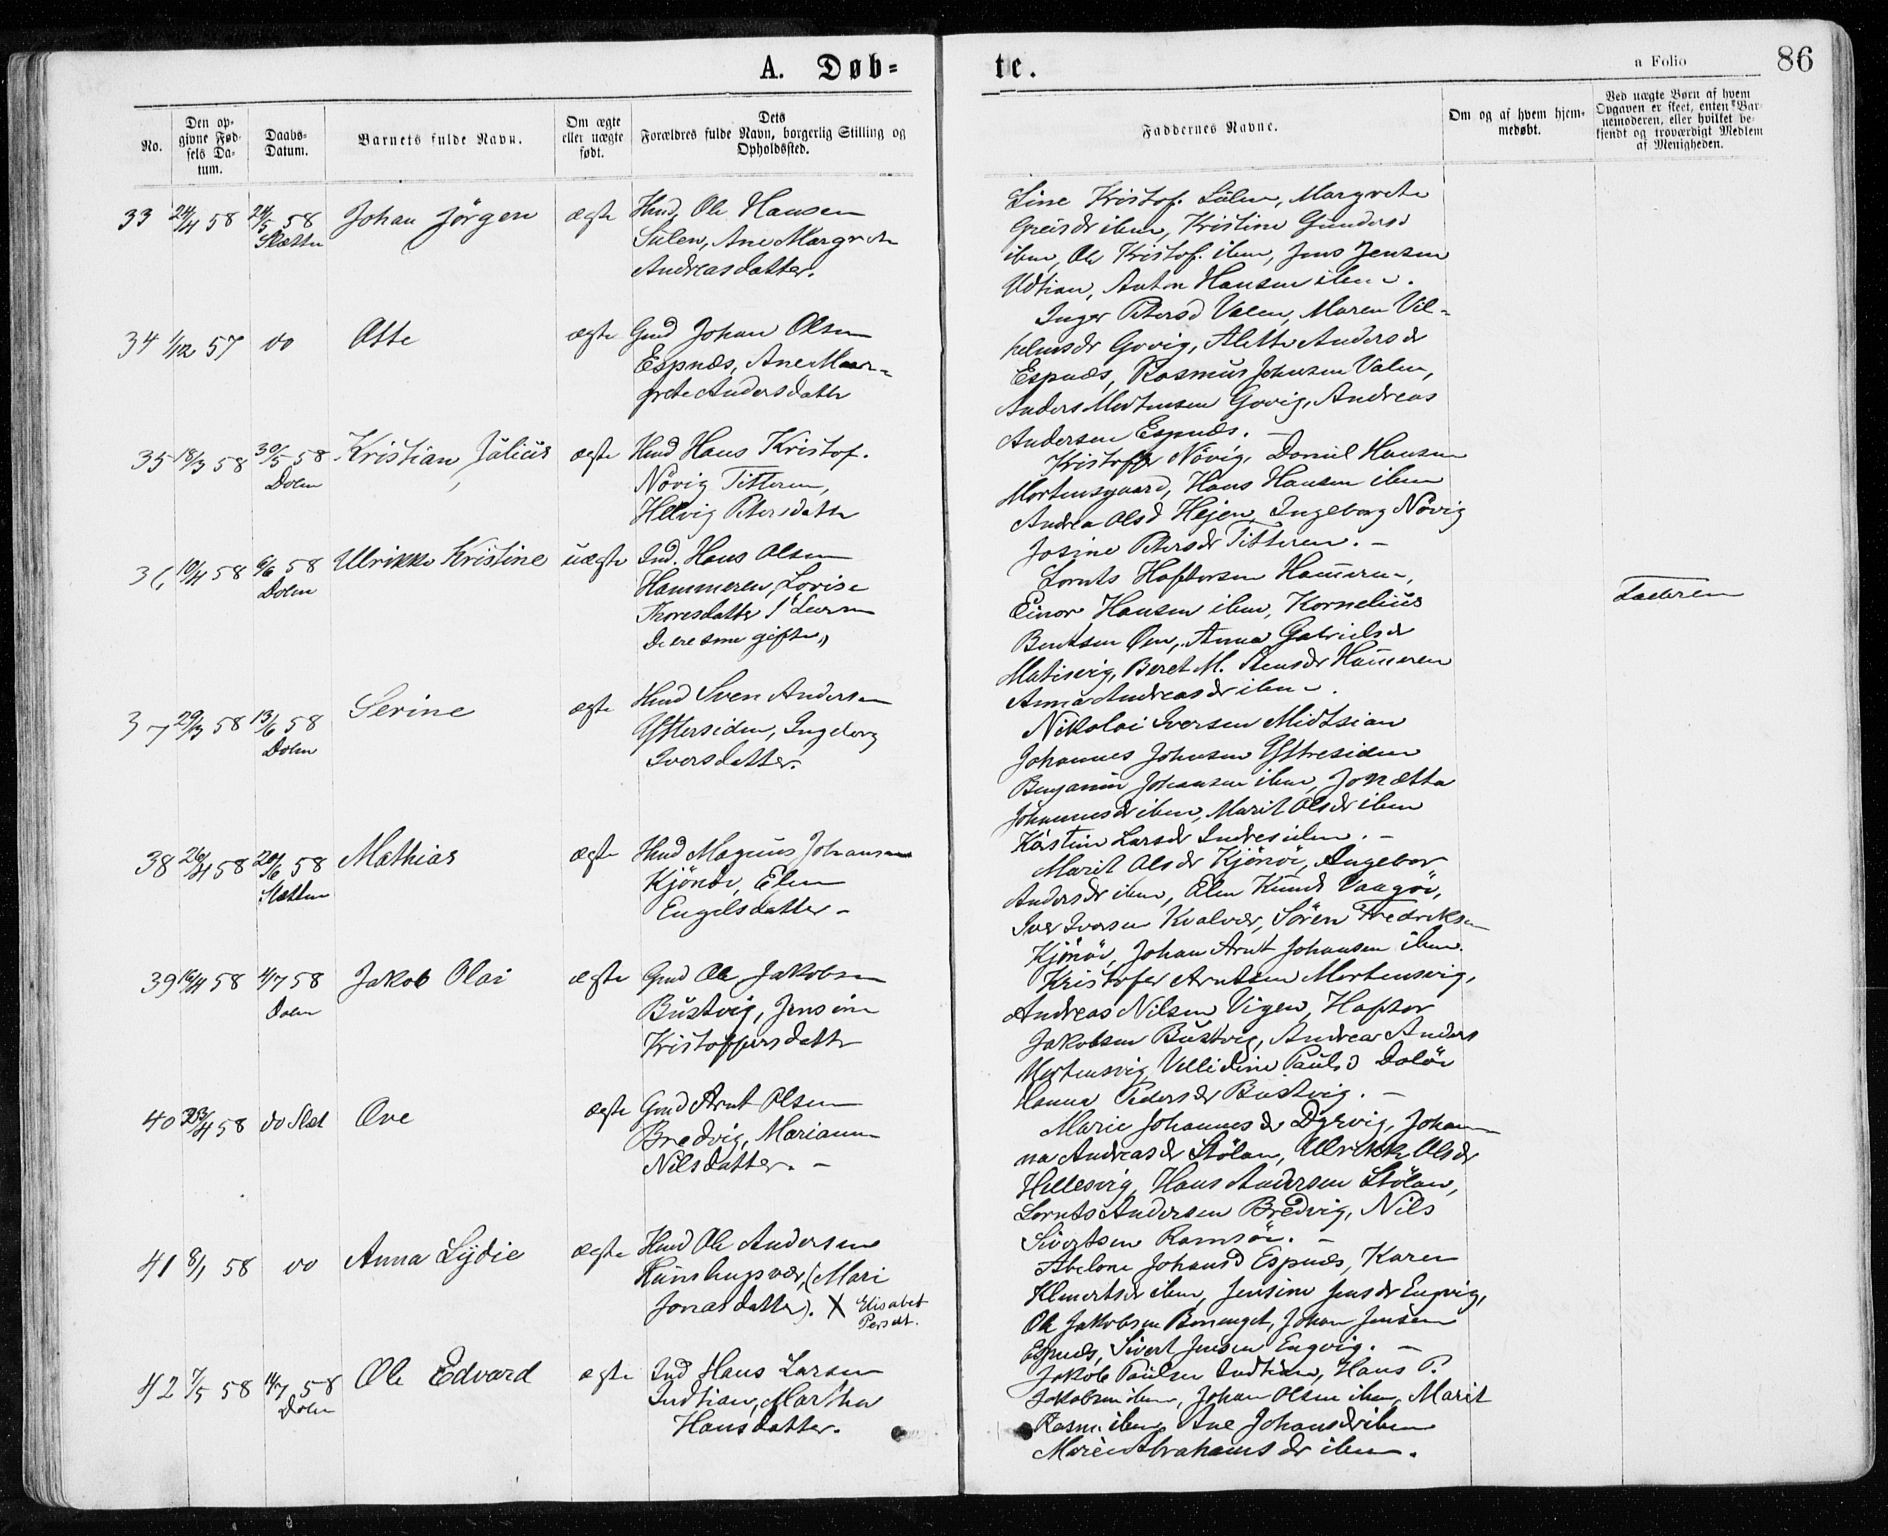 A. Døb=
te.
a Folio
86
No.
Den op-
givne Fød-
sels Da-
tum.
Daabs-
Datum.
Barnets fulde Navn.
Om ægte
eller uægte
født.
Dets
Forældres fulde Navn, borgerlig Stilling og
Opholdssted.
Faddernes Navne.
Om og af hvem hjem-
medøbt.
Ved uægte Børn af hvem
Opgaven er skeet, enten Bar-
nemoderen, eller hvilket be-
kjendt og troværdigt Medlem
af Menigheden.
33 24/4 58 24/5 58 Johan Jörgen ægte Hmd, Ole Hansen
Sletten Sulen, Ane Margrete
Andreasdatter.
Line Kristof. Sulen, Margrete
ibm, Kristine Gundersd
ibm, Ole Kristof. ibm, Jens Jensen
Udtian, Anton Hansen ibm.
34 1/12 57 do Otte ægte Gmd Johan Olsen
Espnæs, Ane Mar-
grete Andersdatter
Inger Petersd Valen, Maren Vil-
helmsdr Govig, Alette Andersdr
Espnæs, Rasmus Johnsen Valen,
Anders Mortensen Govig, Andreas
Andersen Espnæs. -
35 18/3 58 30/5 58 Kristian Julius ægte Hmd Hans Kristof.
Dolm Növig Titteren,
Helvig Petersdatter
Kristoffer Növig, Daniel Hansen
Mortensgaard, Hans Hansen ibm
Andrea Olsd Hejen, Ingeborg Növig
Josine Petersdr Titteren. -
36 10/4 58 6/6 58 Ulrikke Kristine uægte Ind. Hans Olsen
Dolm Hammeren, Lovise
Thoresdatter
De ere sine gifte,,
Lornts Haftorsen Hameren,
Einor Hansen ibm, Kornelius
Bentsen Øen, Anna Gabrielsdr
Matisvig, Beret M. Stensdr Hameren
Anna Andreasdr ibm.
Faderen
37 29/3 58 13/6 58 Serine ægte Hmd Sven Andersen
Dolm Yttersiden, Ingeborg
Iversdatter.
Nikolai Iversen Midtsian
Johannes Johnsen Yttresiden
Benjamin Johansen ibm, Jonætta
Johannesdr ibm, Marit Olsdr ibm
Kirstin Larsdr Indresiden. -
38 26/4 58 20/6 58 Mathias ægte Hmd Magnus Johansen
Sletten Kjönöe, Elen
Engelsdatter -
Marit Olsdr Kjönöe, Ingebor
Andersdr ibm, Elen Knuds Vaagöe,
Iver Iversen Kvalvær, Sören Fredriksen
Kjönöe, Johan Arnt Johansen ibm.
39 16/4 58 4/7 58 Jakob Olai ægte Gmd Ole Jakobsen
Dolm Bustvig, Jensine
Kristoffersdatter
Kristofer Arntsen Mortensvig,
Andreas Nilsen Vigen, Haftor
Jakobsen Bustvig, Andrea Anders
Mortensvig, Paulsd Dolöe
Hanna Pedersdr Bustvig. -
40 23/4 58 do Slet Ove ægte Gmd Arnt Olsen
Bredvig, Mariann
Nilsdatter. -
Marie Johannesdr Dyrvig, Johan-
na Andreasdr Stölan, Ulrikke Olsdr
Hellesvig, Hans Andersen Stölan,
Lornts Andersen Bredvig, Nils
Sivertsen Ramsöe. -
41 8/1 58 do Anna Lydie ægte Hmd Ole Andersen
(Mari
Jonasdatter). X Elisabet
Persdt.
Abelone Johansd Espnæs, Karen
Klemetsdr ibm, Jensine Jensdr Engvig,
Ole Jakobsen Johan Jensen
Espnæs, Sivert Jensen Engvig. -
42 7/5 58 14/7 58 Ole Edvard ægte Ind Hans Larsen
Dolm Indtian, Martha
Hansdatter.
Jakob Paulsen Indtian, Hans P.
Jakobsen ibm, Johan Olsen ibm, Marit
Rasm. ibm, Ane Johansdr ibm
Maren Abrahamsdr ibm.